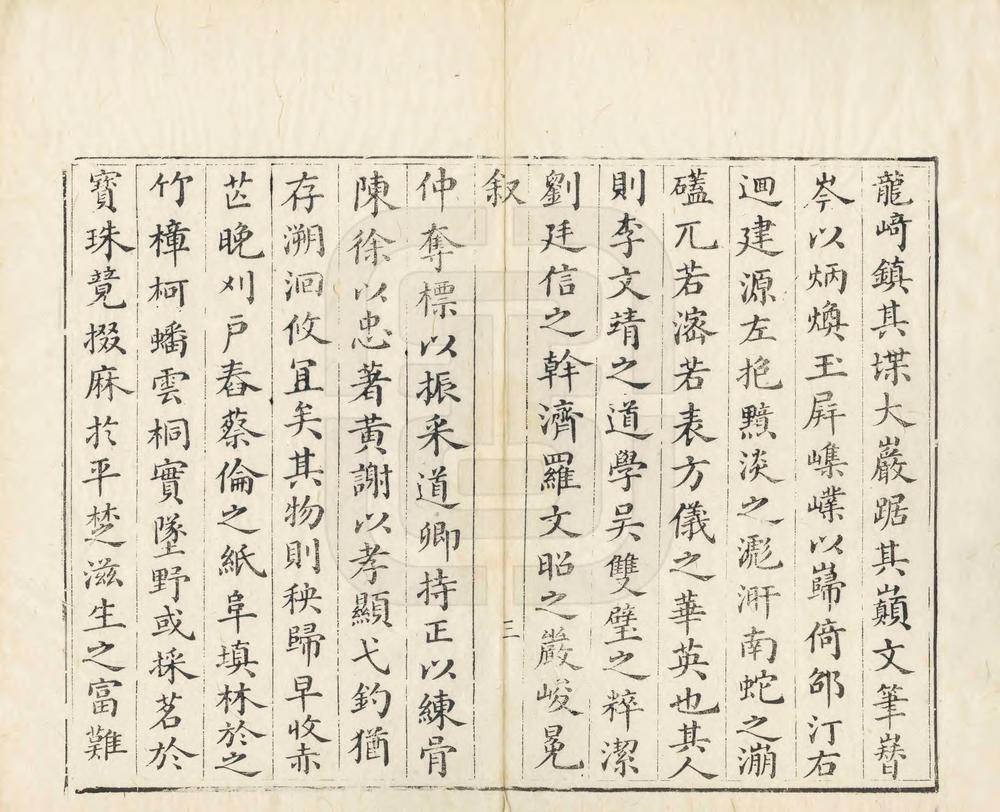 龍﨑鎮其堞大巖踞其巔文筆嶜
岑以炳煥玉屛嶫以巋倚邵汀右
迴建源左挹黯淡之濔南蛇之漰
礚兀若滵若表方儀之華英也其人
則李文靖之道學吴雙璧之粹潔
劉廷信之幹濟羅文昭之嚴峻冕
叙
三
仲奪標以振采道卿持正以練骨
陳徐以忠著黄謝以孝顯弋釣猶
存溯洄攸冝矣其物則秧歸早收赤
芒晚刈戸舂蔡倫之紙阜填林於之
竹樟柯蟠雲桐實墜野或採茗於
寳珠竟掇麻扵平埜滋生之富難